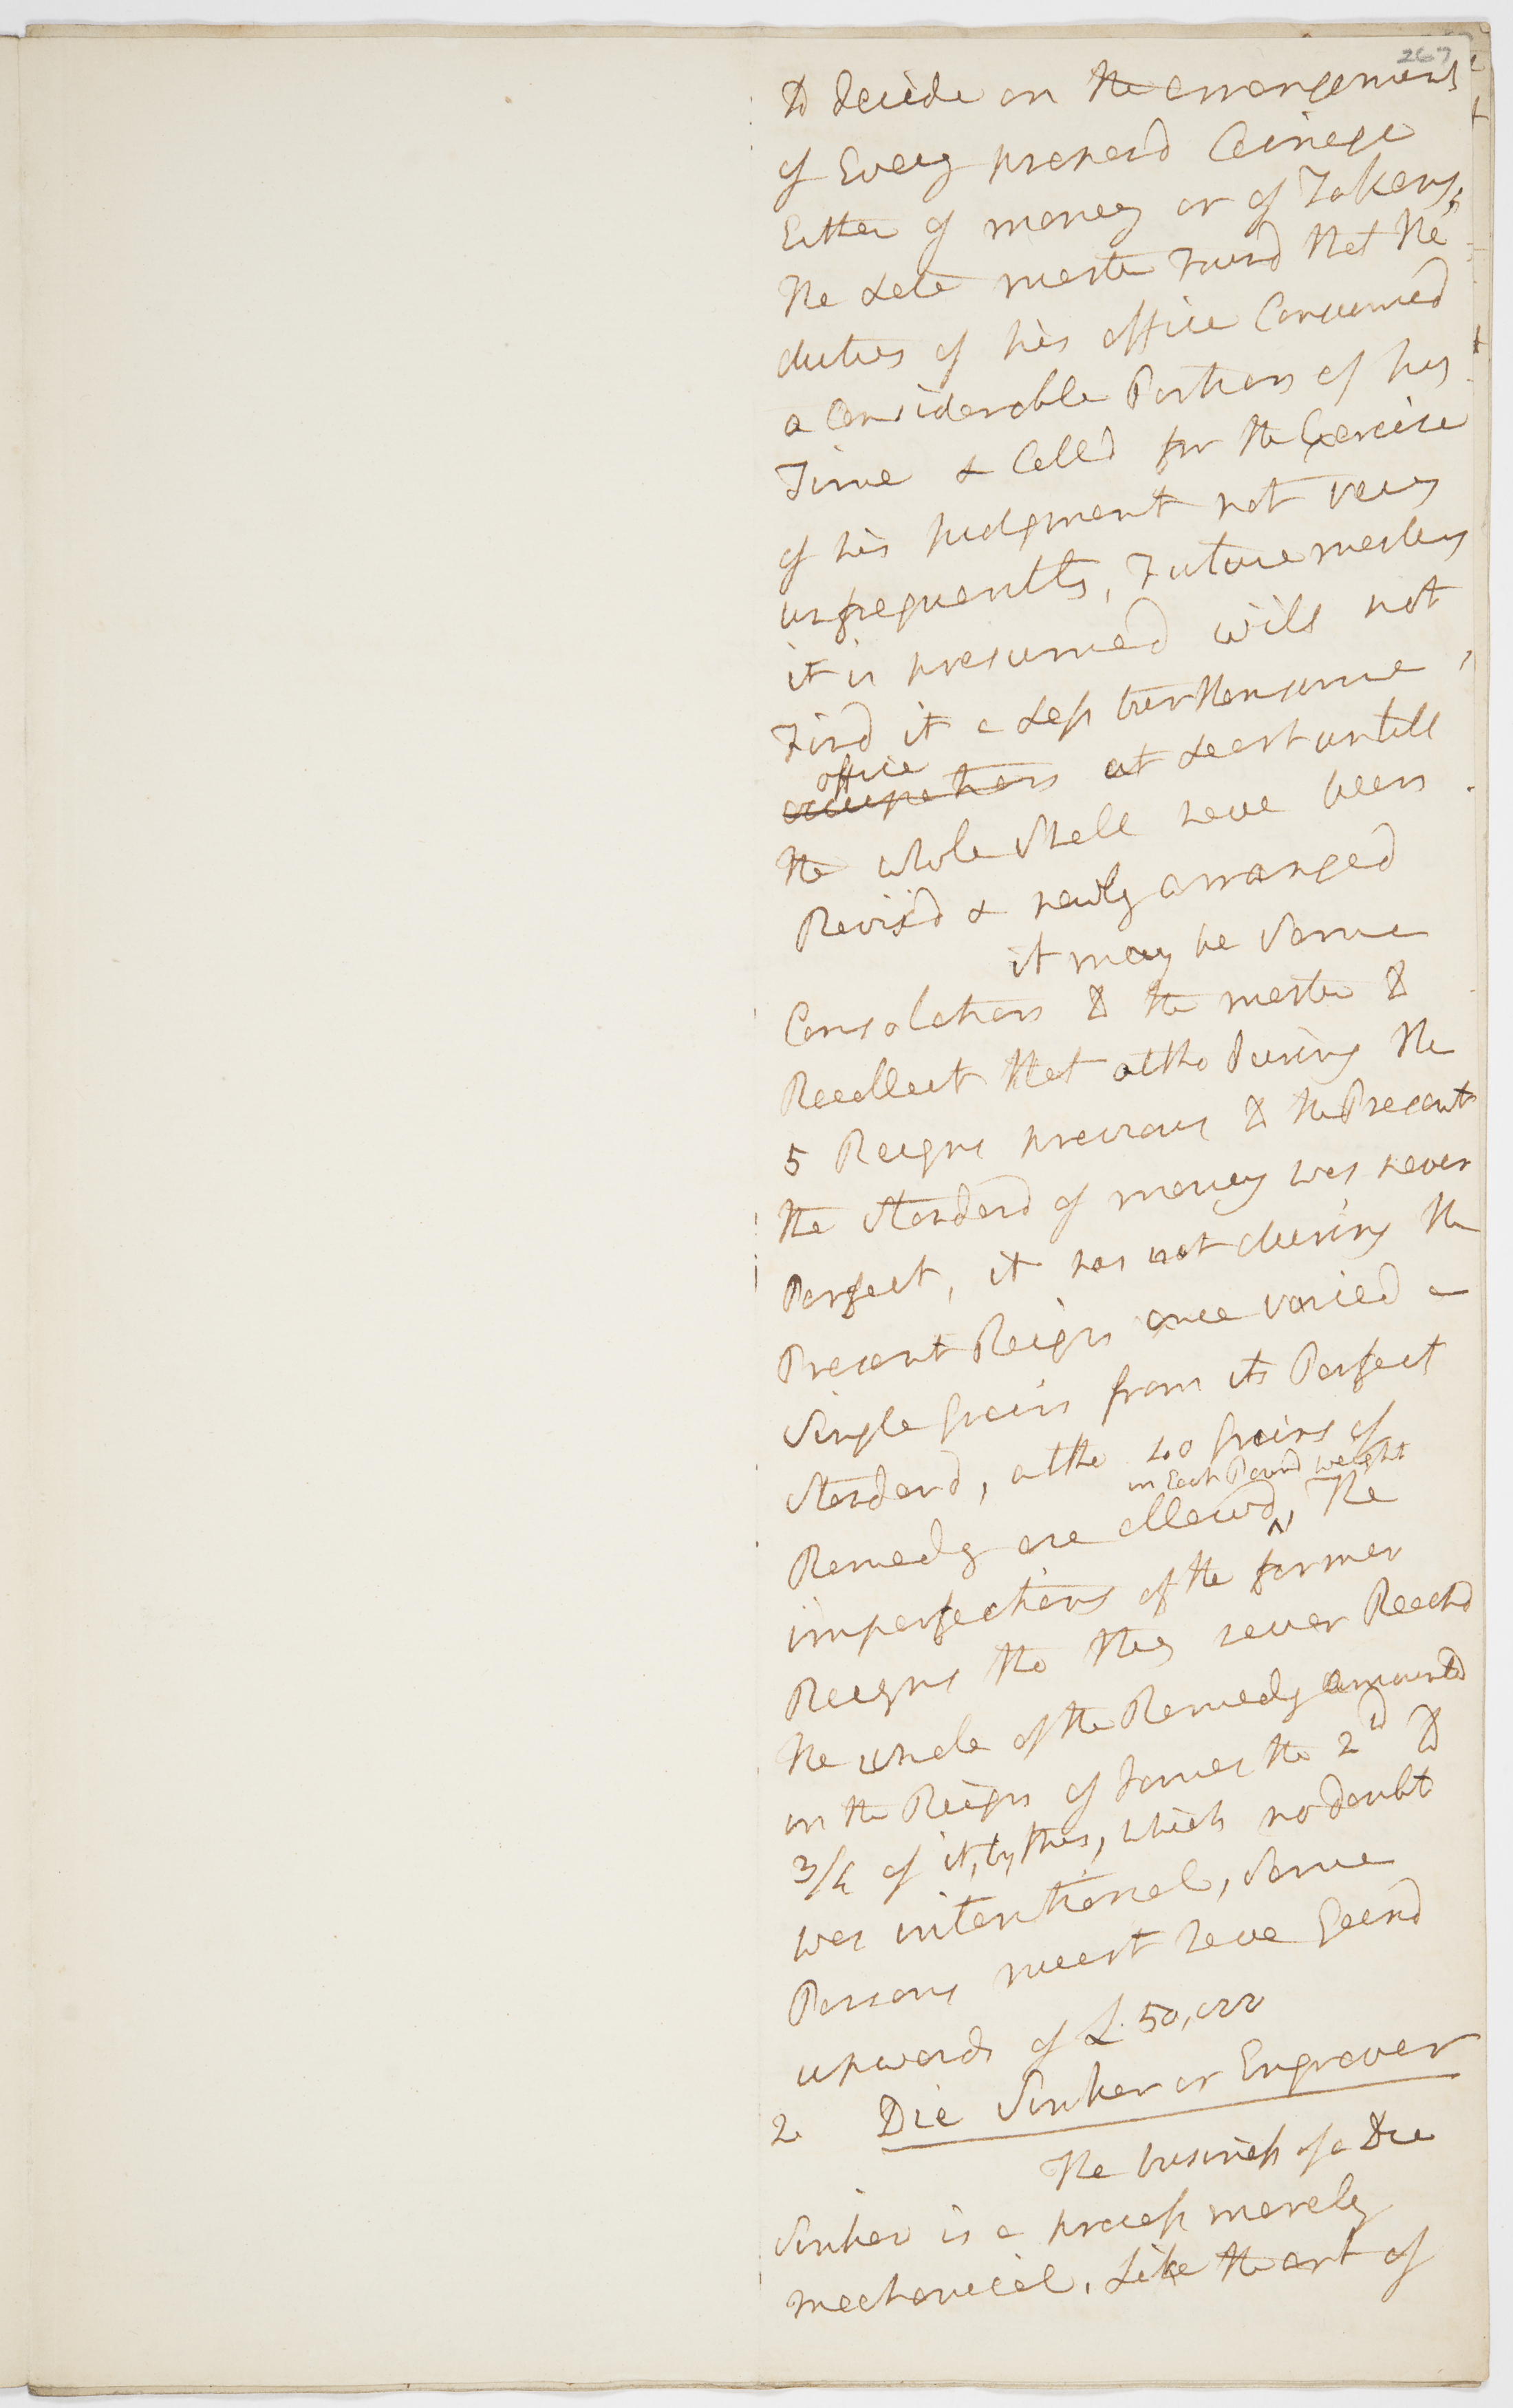 267
to decide on the arrangement
of Every proposd Coinage
Either of money or of Tokens,
the Late master Found that the
duties of his office Consumed
a Considerable Portion of his
Time & Calld for the Exercise
of his judgment not very
unfrequently, Future masters
it is presumed will not
Find it a Less burthensome
office
occupation at Least untill
the whole Shall have been
Revisd & newly arranged
it may be Some
Consolation to the master to
Recollect that altho During the
5 Reigns previous to the Present
the Standard of money was never
Perfect, it has not during the
Present Reign once varied a
Single Grain from its Perfect
Standard, altho 40 Grains of
in Each Pound weight
Remedy are allowd, The
imperfections of the former
Reigns tho they never Reachd
the whole of the Remedy amounted
in the Reign of James the 2d to
3/4 of it, by this, which no doubt
was intentional, Some
Persons must have Gaind
upwards of £.50,000
2 Die Sinker or Engraver
The business of a Die
Sinker is a process merely
mechanical, Like the art of